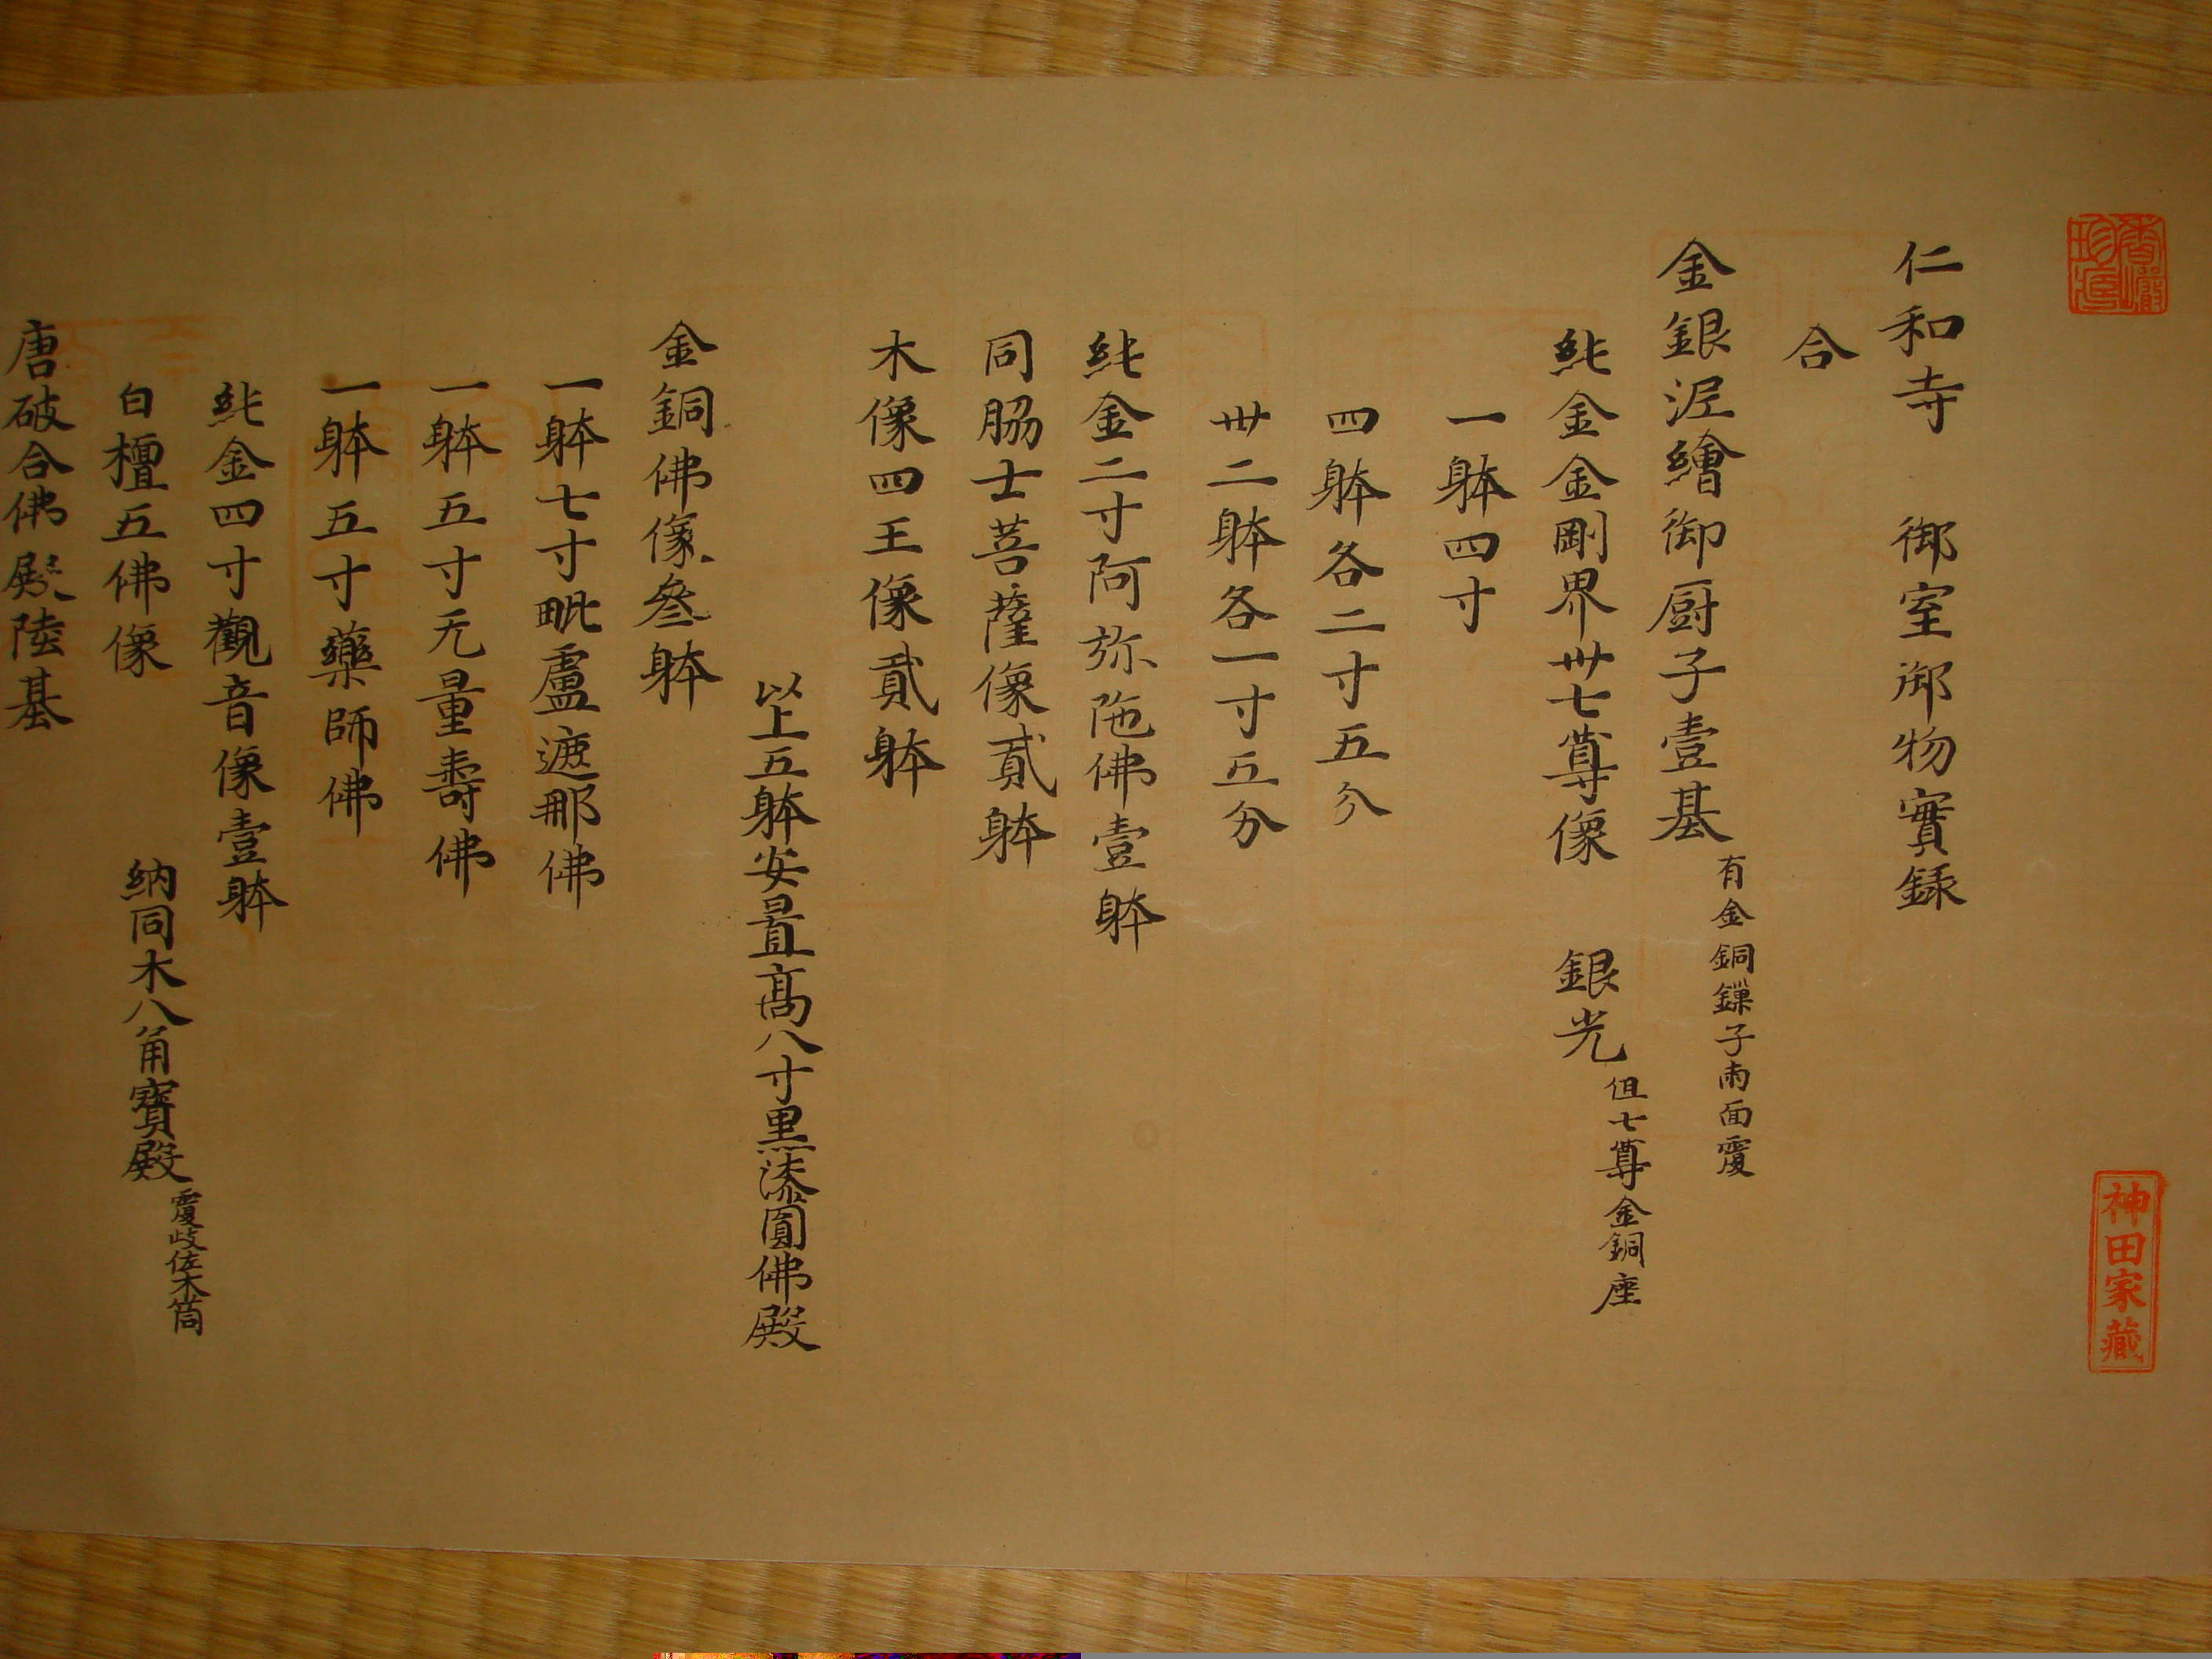 仁和寺　御室御物實録
合
金銀泥繪御厨子壹基 有金銅鏁子兩面覆
純金金剛界卅七尊像　銀光 但七尊金銅座
一躰四寸
四躰各二寸五分
卅二躰各一寸五分
純金二寸阿弥陁佛壹躰
同脇士菩薩像貳躰
木像四王像貳躰
以上五躰安置高八寸黒漆圓佛殿
金銅佛像叄躰
一躰七寸毗盧遮那佛
一躰五寸无量壽佛
一躰五寸藥師佛
純金四寸觀音像壹躰
白檀五佛像　納同木八角寶殿 覆岐佐木筒
唐破合佛殿陸基
神田家藏